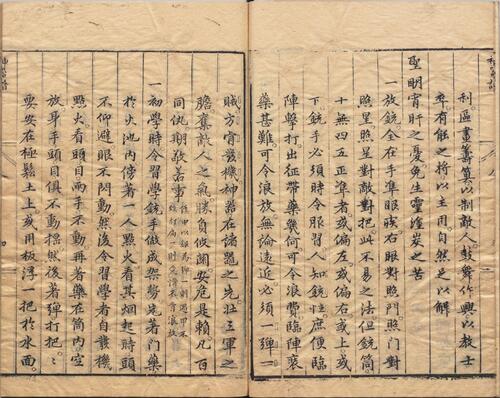 制區畫籌筭以制敵人鼓舞作興以教士
卒有餘之將以主用自然之以解
聖明宵肝之憂免生靈塗炭之苦
一放銃全在手準眼𥅆右眼對照門照門對
照星照星對敵對把此不易之法但銃筒
十無四五正準者或偏左或偏右或上或
下銃手必須時令服習人知銃性庶便臨
陣擊打出征帶藥幾何可令浪費臨陣裝
藥甚難可令浪放無論遠近必須一彈二
賊方宵發機神器在諸器之先壯三軍之
膽奪敵人之氣勝負攸關安危是賴凡百
同仇期敬善事
一初學時令習學銃手做成架勢先著門藥
於火池內傍著一人點火看其烟起時頭
不仰避眼不閃動然後令習學者自發機
點火看頭目兩手不動再著藥在筒內空
放身手頭目俱不動搖然後著彈打把把
要安在極鬆土上或用板浮一把於水面